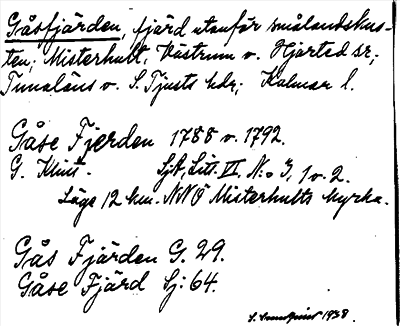 Gåsfjärden, fjärd utanför smålandskus-
ten; Misterhult, Västrum o. Hjorted sr;
Tunaläns o. S. Tjusts hdr; Kalmar l.
Gåse Fjerden 1788 o. 1792.
G. Klint. Sjk, Litt. VI, N:o 3, 1 o. 2.
Läge 12 km. NNÖ Misterhults kyrka.
Gås Fjärden G. 29.
Gåse Fjärd Sj: 64.
S. 1938.